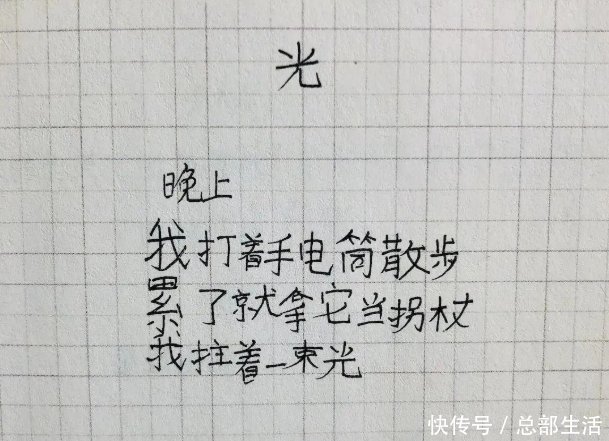 光
晚上
我打着手电筒散步
累了就拿它当拐杖
我拄着一束光
快传号／总部生活